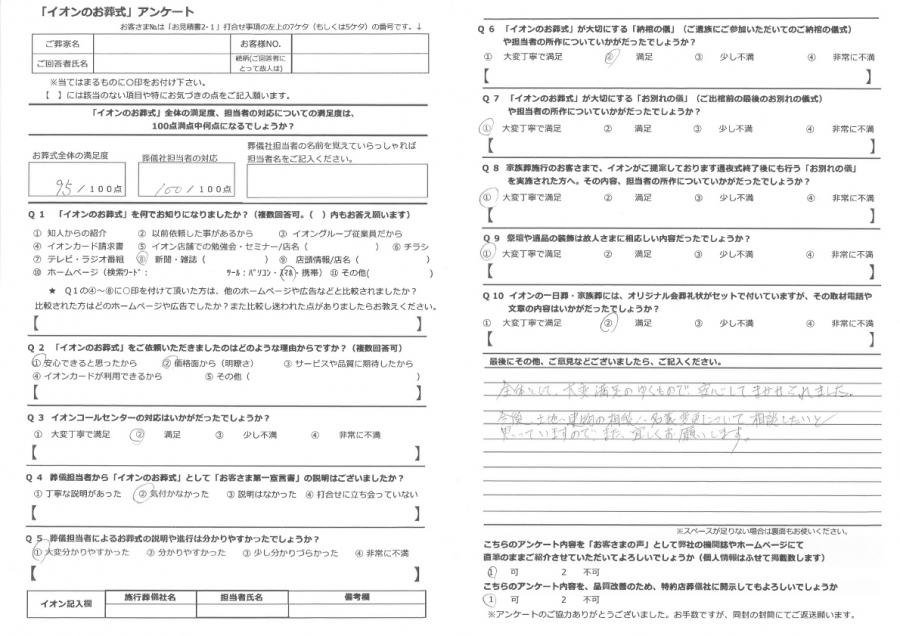 「イオンのお葬式」アンケート
お客さまNo.は「お見積書2-1」打合せ事項の左上の7ケタ(もしくは5ケタ)の番号です。↓
ご葬家名
お客様NO.
ご回答者氏名
続柄(ご回答者にとって故人は)
※当てはまるものに〇印をお付け下さい。
【 】には該当のない項目や特にお気づきの点をご記入願います。
「イオンのお葬式」全体の満足度、担当者の対応についての満足度は、
100点満点中何点になるでしょうか?
お葬式全体の満足度
葬儀社担当者の対応
葬儀社担当者の名前を覚えていらっしゃれば
担当者名をご記入ください。
95/100点
100/100点
Q1 「イオンのお葬式」を何でお知りになりましたか?(複数回答可。( )内もお答え願います)
① 知人からの紹介 ② 以前依頼した事があるから ③ イオングループ従業員だから
④ イオンカード請求書 ⑤ イオン店舗での勉強会・セミナー/店名( ) ⑥ チラシ
⑦ テレビ・ラジオ番組 ⑧ 新聞・雑誌( ) ⑨ 店頭情報/店名( )
⑩ ホームページ(検索ワード: ツール:パソコン・スマホ・携帯) ⑪ その他( )
★ Q1の④~⑧に〇印を付けて頂いた方は、他のホームページや広告などと比較されましたか?
比較された方はどのホームページや広告でしたか?また比較し迷われた点がありましたらお教えください。
【 】
Q2 「イオンのお葬式」をご依頼いただきましたのはどのような理由からですか?(複数回答可)
① 安心できると思ったから ② 価格面から(明瞭さ) ③ サービスや品質に期待したから
④ イオンカードが利用できるから ⑤ その他( )
【 】
Q3 イオンコールセンターの対応はいかがだったでしょうか?
① 大変丁寧で満足 ② 満足 ③ 少し不満 ④ 非常に不満
【 】
Q4 葬儀担当者から「イオンのお葬式」として「お客さま第一宣言書」の説明はございましたか?
① 丁寧な説明があった ② 気付かなかった ③ 説明はなかった ④ 打合せに立ち会っていない
【 】
Q5 葬儀担当者によるお葬式の説明や進行は分かりやすかったでしょうか?
① 大変分かりやすかった ② 分かりやすかった ③ 少し分かりづらかった ④ 非常に不満
【 】
イオン記入欄
施行葬儀社名
担当者氏名
備考欄
Q6 「イオンのお葬式」が大切にする「納棺の儀」(ご遺族にご参加いただいてのご納棺の儀式)
や担当者の所作についていかがだったでしょうか?
① 大変丁寧で満足 ② 満足 ③ 少し不満 ④ 非常に不満
【 】
Q7 「イオンのお葬式」が大切にする「お別れの儀」(ご出棺前の最後のお別れの儀式)
や担当者の所作についていかがだったでしょうか?
① 大変丁寧で満足 ② 満足 ③ 少し不満 ④ 非常に不満
【 】
Q8 家族葬施行のお客さまで、イオンがご提案しております通夜式終了後にも行う「お別れの儀」
を実施された方へ。その内容、担当者の所作についていかがだったでしょうか?
① 大変丁寧で満足 ② 満足 ③ 少し不満 ④ 非常に不満
【 】
Q9 祭壇や遺品の装飾は故人さまに相応しい内容だったでしょうか?
① 大変丁寧で満足 ② 満足 ③ 少し不満 ④ 非常に不満
【 】
Q10 イオンの一日葬・家族葬には、オリジナル会葬礼状がセットで付いていますが、その取材電話や
文章の内容はいかがだったでしょうか?
① 大変丁寧で満足 ② 満足 ③ 少し不満 ④ 非常に不満
【 】
最後にその他、ご意見などございましたら、ご記入ください。
全体として、大変満足のゆくもので、安心してまかせられました。
今後、土地・建物の相続、名義変更について相談したいと
思っていますので、また、宜しくお願いします。
※スペースが足りない場合は裏面もお使いください。
こちらのアンケート内容を「お客さまの声」として弊社の機関誌やホームページにて
直筆のままご紹介させていただいてよろしいでしょうか(個人情報はふせて掲載致します)
1 可 2 不可
こちらのアンケート内容を、品質改善のため、特約店葬儀社に開示してもよろしいでしょうか
1 可 2 不可
※アンケートのご協力ありがとうございました。お手数ですが、同封の封筒にてご返送願います。